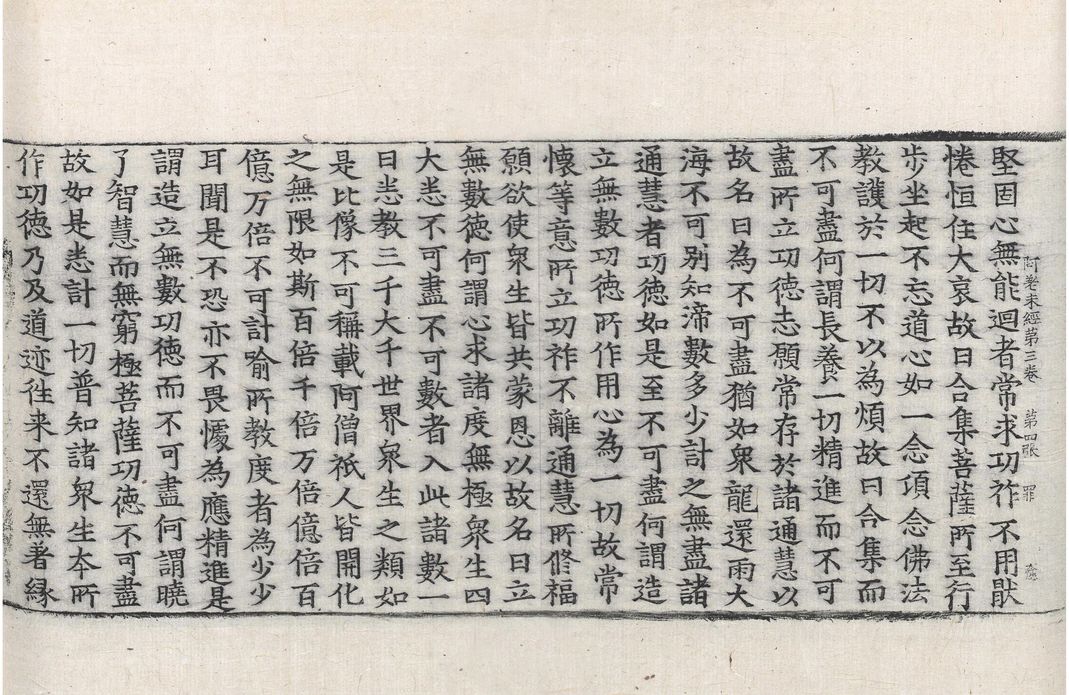 阿差末經第三卷　第四張　罪
堅固心無能迴者常求功祚不用猒
惓恒住大哀故曰合集菩薩所至行
步坐起不忘道心如一念項念佛法
教護於一切不以為煩故曰合集而
不可盡何謂長養一切精進而不可
盡所立功德志願常存於諸通慧以
故名曰為不可盡猶如衆龍還雨大
海不可別知渧數多少計之無盡諸
通慧者功德如是至不可盡何謂造
立無數功德所作用心為一切故常
懷等意所立功祚不離通慧所修福
願欲使衆生皆共蒙恩以故名曰立
無數德何謂心求諸度無極衆生四
大恙不可盡不可數者入此諸數一
曰恙教三千大千世界衆生之類如
是比像不可稱載阿僧祇人皆開化
之無限如斯百倍千倍万倍億倍百
億万倍不可計喻所教度者為少少
耳聞是不恐亦不畏懅為應精進是
謂造立無數功德而不可盡何謂曉
了智慧而無窮極菩薩功德不可盡
故如是恙計一切普知諸衆生夲所
作功德乃及道迹往来不還無著縁